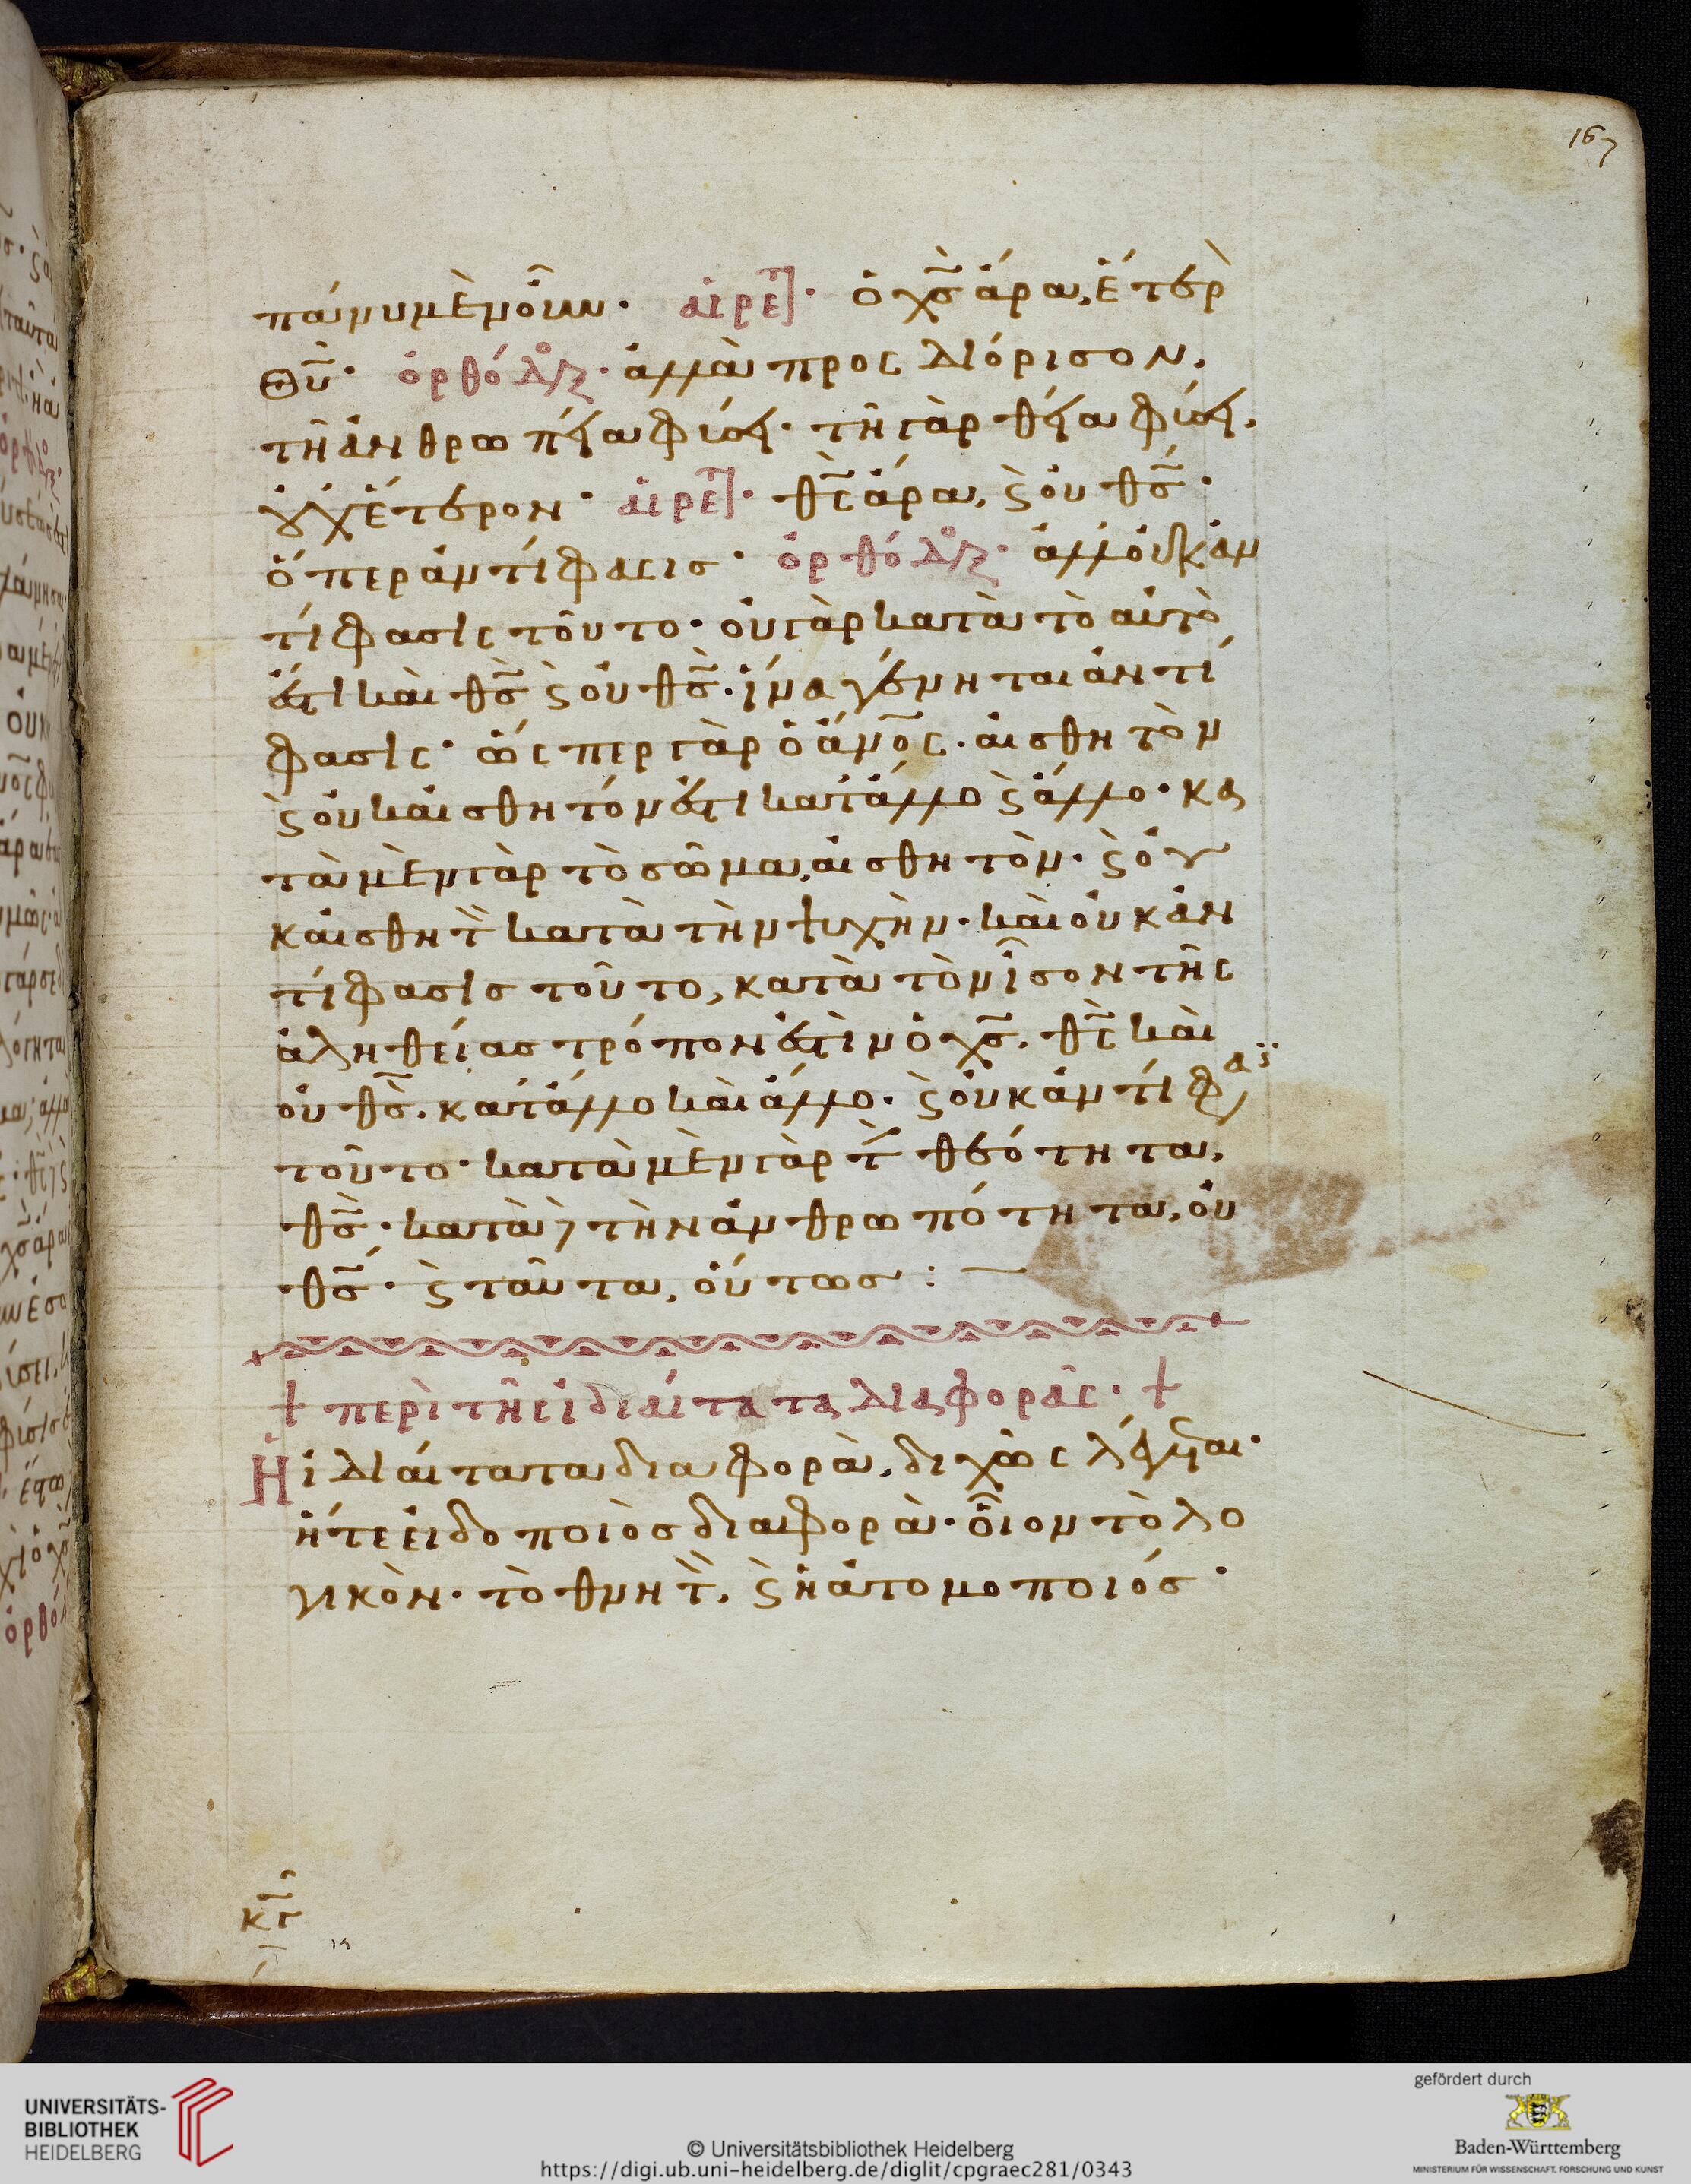 167
πανυμὲνοῦν· αἱρετ· ὁ χς ἄρα, ἕτερ
Θῦ· ὀρθόδοξ· ἀλλὰ προς διόρισον,
τῆ ἀνθρωπεία φύσει· τῆ γὰρ θεία φύσει,
οὐχ ἕτερον· αἱρετ· θς ἄρα, ϛ οὐ θς·
ὅπερ ἀντίφασισ· ὀρθόδοξ· ἀλλ' οὐκ ἀν
τίφασις τοῦτο· οὐ γὰρ κατὰ τὸ αὐτὸ
ἐστι καὶ θς ϛ οὐ θς· ἵνα γένηται ἀντί
φασις· ὥςπερ γὰρ ὁ ἄνος· αἰσθητὸν
ϛ οὐκ αἰσθητόν ἐστι κατ' ἄλλο ϛ ἄλλο· κα
τὰ μὲν γὰρ τὸ σῶμα, αἰσθητὸν· ϛ οὐ
κ αἰσθητ κατὰ τὴν ψυχὴν· καὶ οὐκ ἀν
τίφασισ τοῦτο, κατὰ τὸν ἶσον τῆς
ἀληθείας τρόπον ἐστὶν ὁ χς, θς καὶ
οὐ θς· κατ' ἄλλο καὶ ἄλλο· ϛ οὐκ ἀντίφασ
τοῦτο· κατὰ μὲν γὰρ τ θεότητα,
θς· κατὰ δὲ τὴν ἀνθρωπότητα, οὐ
θς· ϛ ταῦτα, οὕτωσ :
+ περὶ τῆς ἰδιαίτατα διαφορᾶς· +
Ἡ ἰδιαίτατα διαφορὰ, διχῶς λέγεται·
ἥ τε εἰδοποιὸσ διαφορὰ· οἷον τὸ λο
γικὸν· τὸ θνητ, ϛ ἡ ἀτομοποιόσ·
κγ
UNIVERSITÄTS-
BIBLIOTHEK
HEIDELBERG
© Universitätsbibliothek Heidelberg
https://digi.ub.uni-heidelberg.de/diglit/cpgraec281/0343
gefördert durch
Baden-Württemberg
MINISTERIUM FÜR WISSENSCHAFT, FORSCHUNG UND KUNST